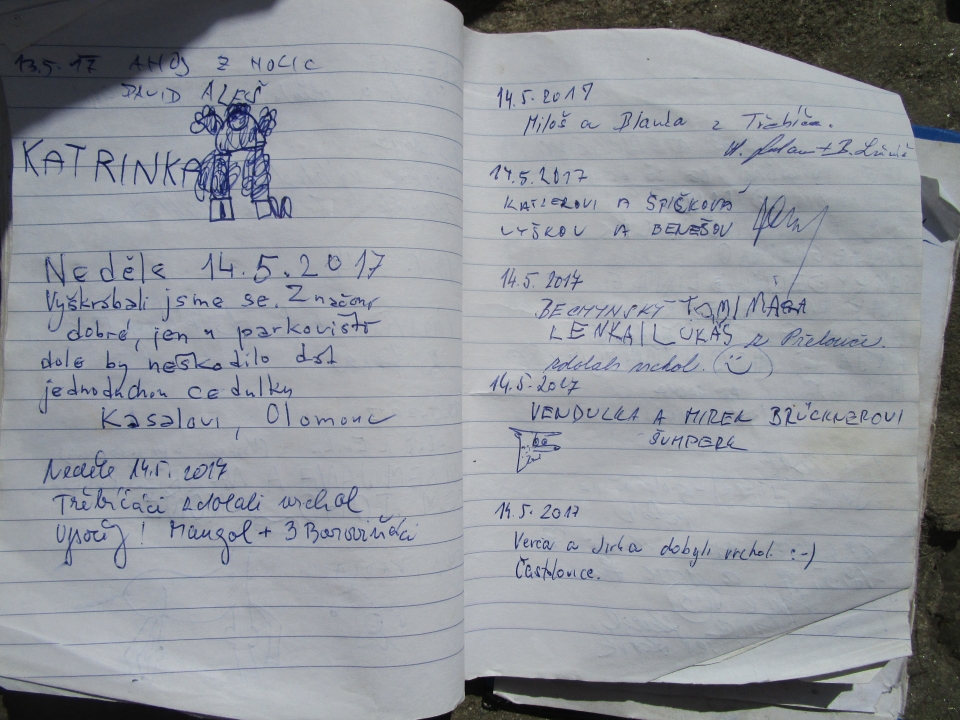 13.5.17 AHOJ Z HOLIC
DAVID ALEŠ
KATRINKA
Neděle 14.5.2017
Vyškrábali jsme se. Značení
dobré, jen u parkoviště
dole by neškodilo dát
jednoduchou cedulku
Kasalovi, Olomouc
Neděle 14.5. 2017
Třebíčáci zdolali vrchol
Vysočiny! Mangol + 3 Borovináči
14.5.2017
Miloš a Blanka z Třebíče.
14.5.2017
A ŠPIČKOVÁ
VYŠKOV A BENEŠOV
14.5.2017
BECHYNSKÝ TOM/MÁRA
LENKA/LUKÁŠ z Přelouče.
zdolali vrchol.
14.5.2017
VENDULKA A MIREK BRÜCKNEROVI
ŠUMPERK
14.5.2017
Verča a Jirka dobyli vrchol :-)
Častolovice.